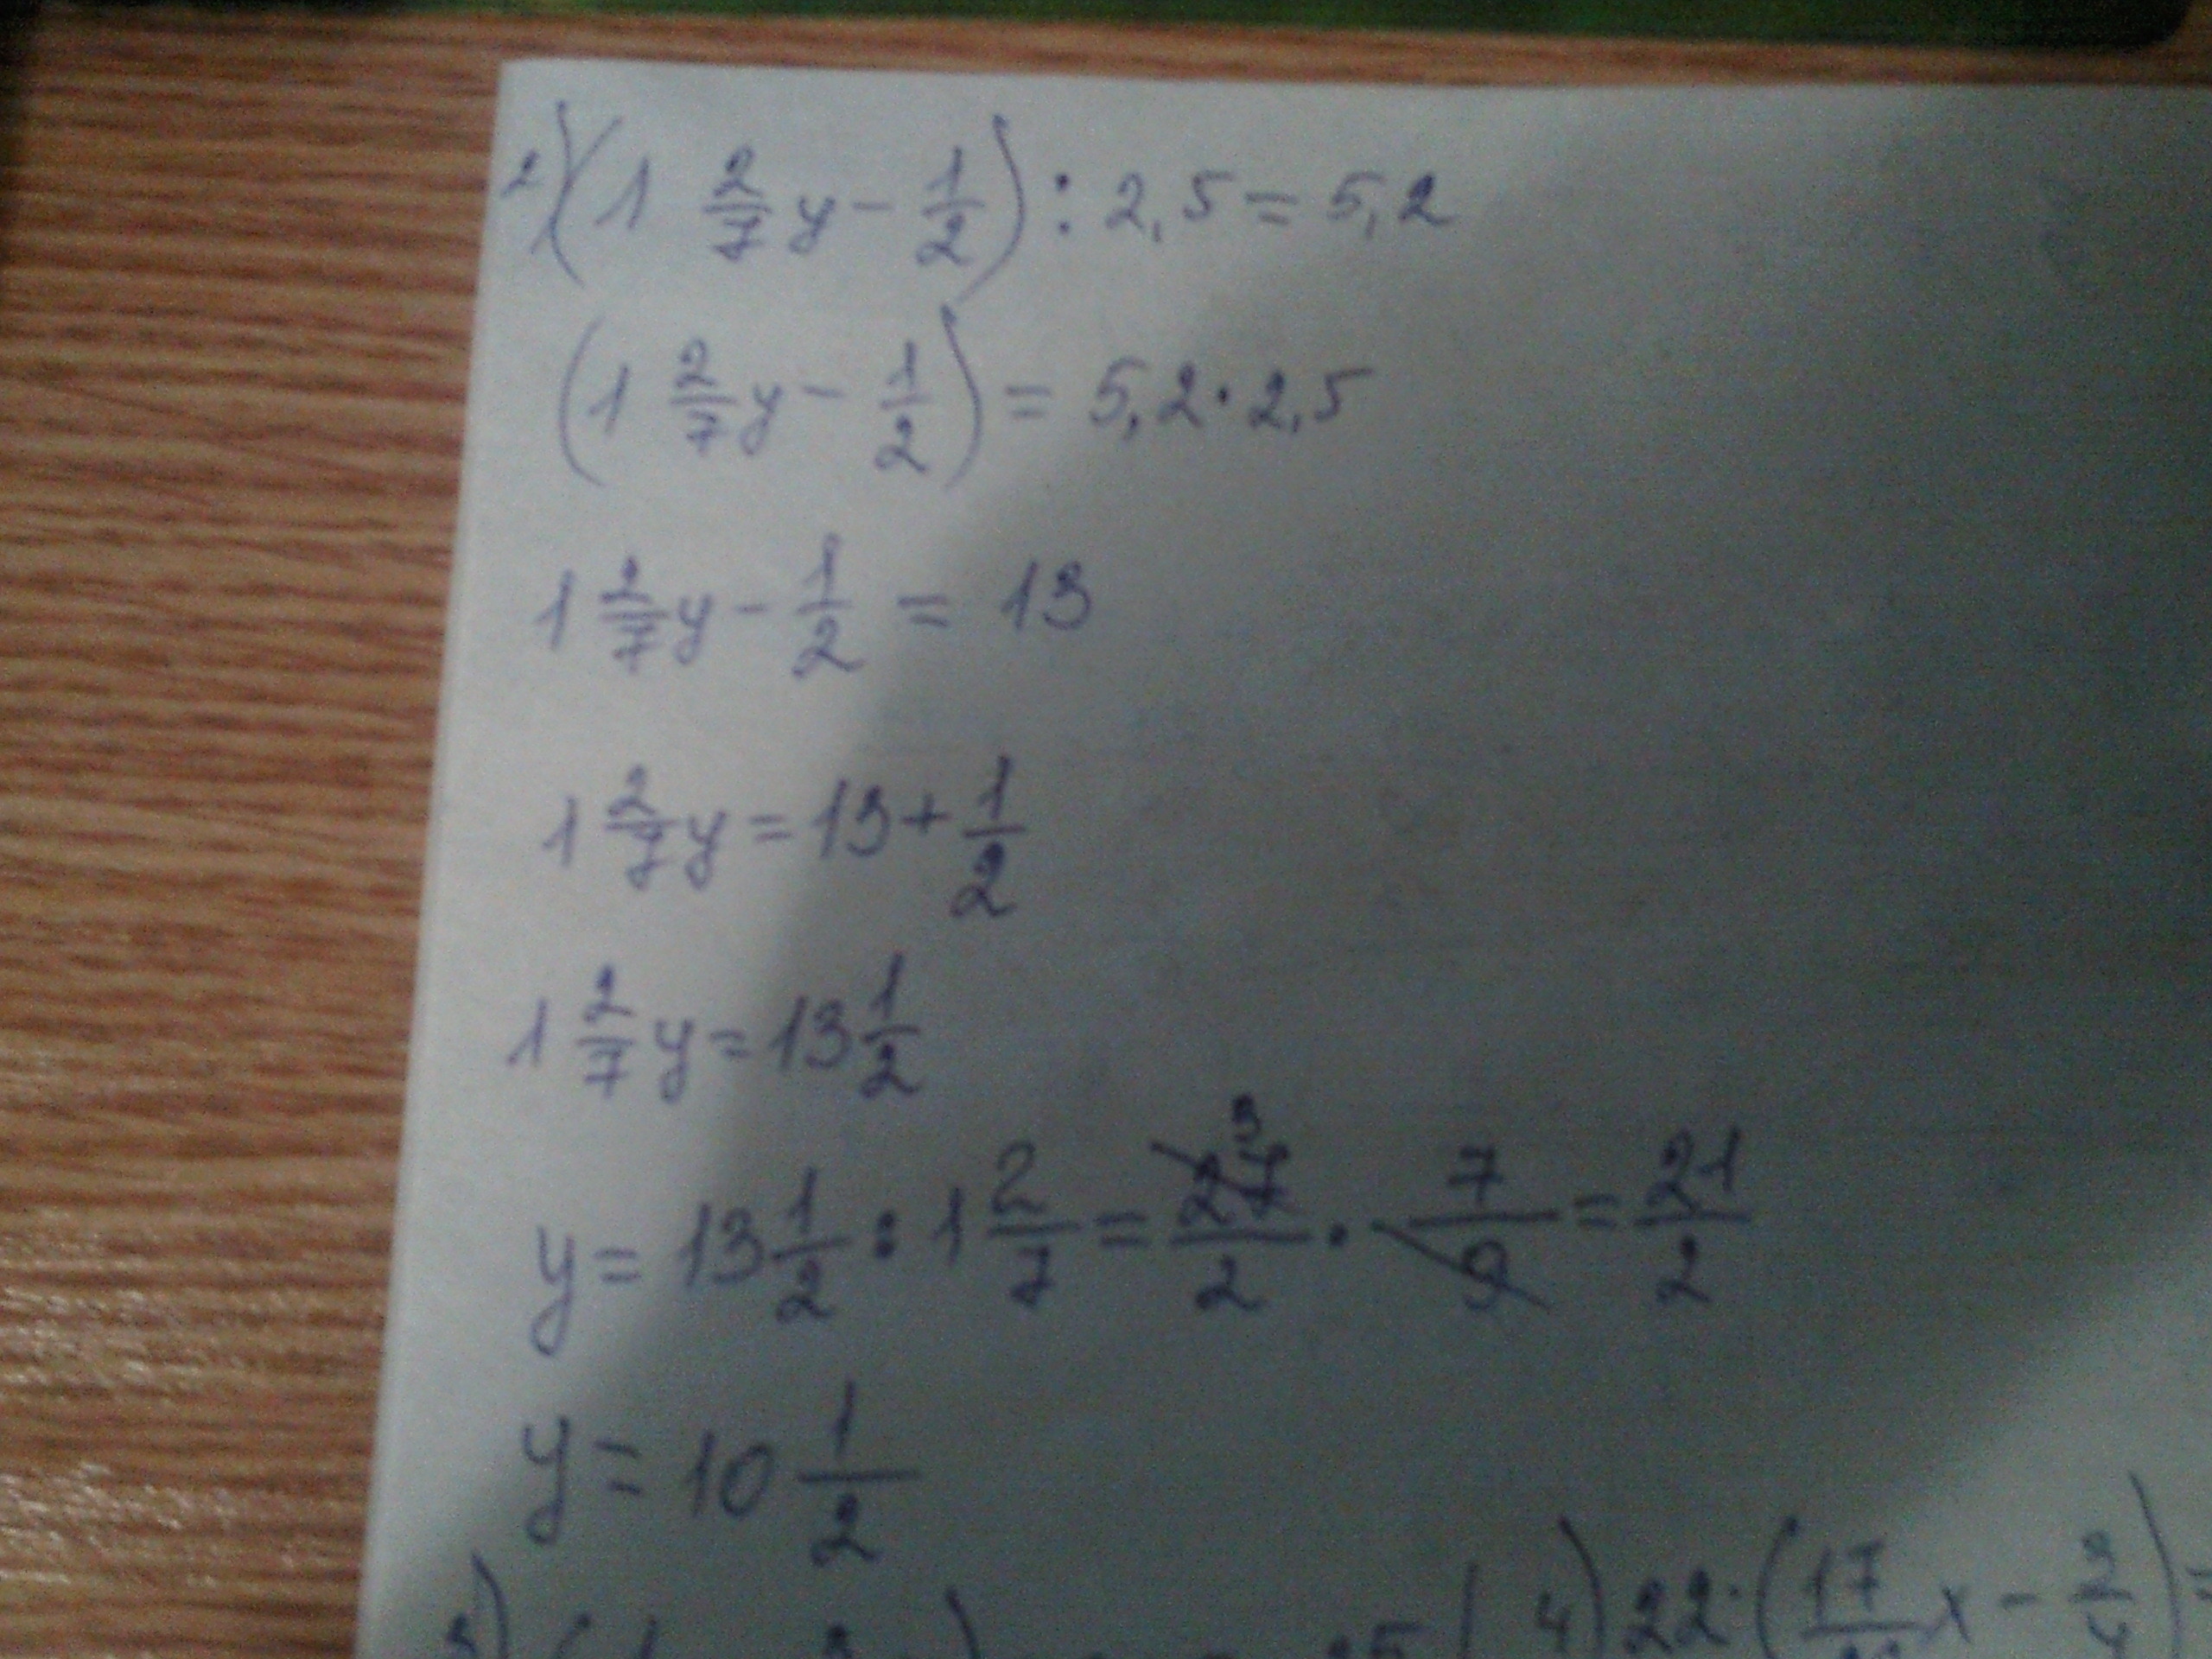 2) (1 2/7 y - 1/2) : 2,5 = 5,2
(1 2/7 y - 1/2) = 5,2 · 2,5
1 2/7 y - 1/2 = 13
1 2/7 y = 13 + 1/2
1 2/7 y = 13 1/2
y = 13 1/2 : 1 2/7 = 27/2 3 · 7/9 = 21/2
y = 10 1/2
4) 22 · (17/ x -